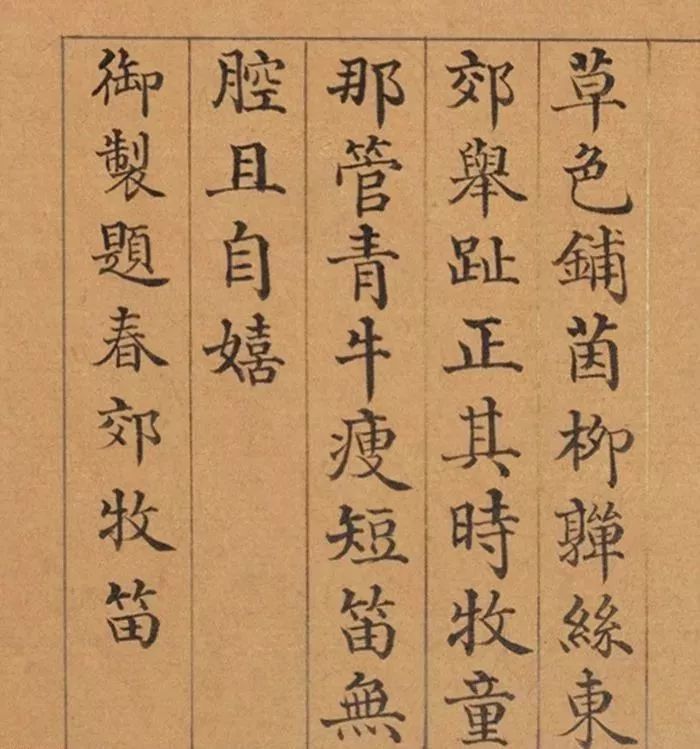 草色鋪茵柳嚲絲東
郊舉趾正其時牧童
那管青牛瘦短笛無
腔且自嬉
御製題春郊牧笛